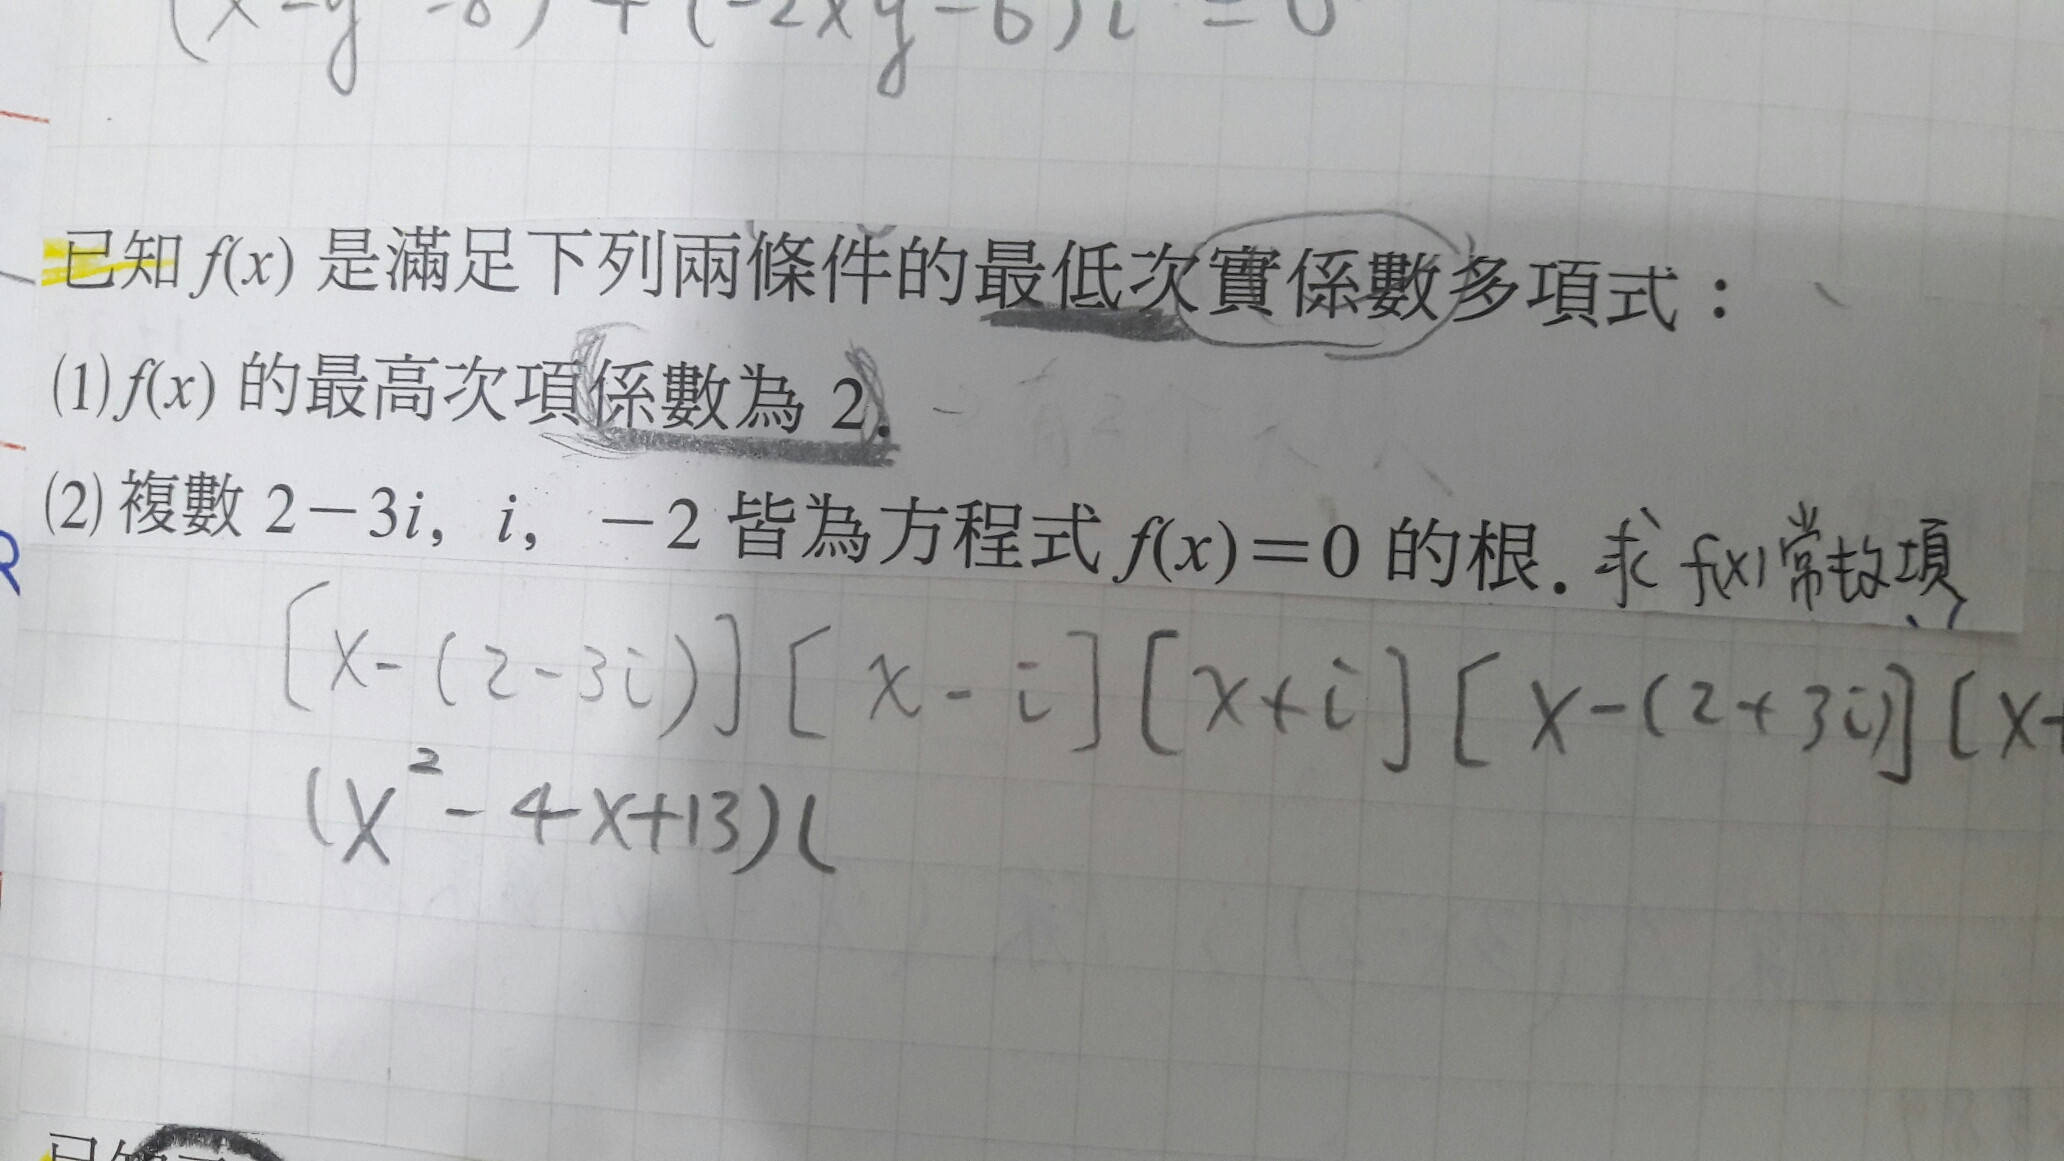 (x²-y²-8)+(-2xy-6)i=0
已知 f(x) 是滿足下列兩條件的最低次實係數多項式：
(1) f(x) 的最高次項係數為 2.
(2) 複數 2-3i，i，-2 皆為方程式 f(x)=0 的根. 求 f(x) 常數項
[x-(2-3i)][x-i][x+i][x-(2+3i)][x+
(x²-4x+13)(
已知